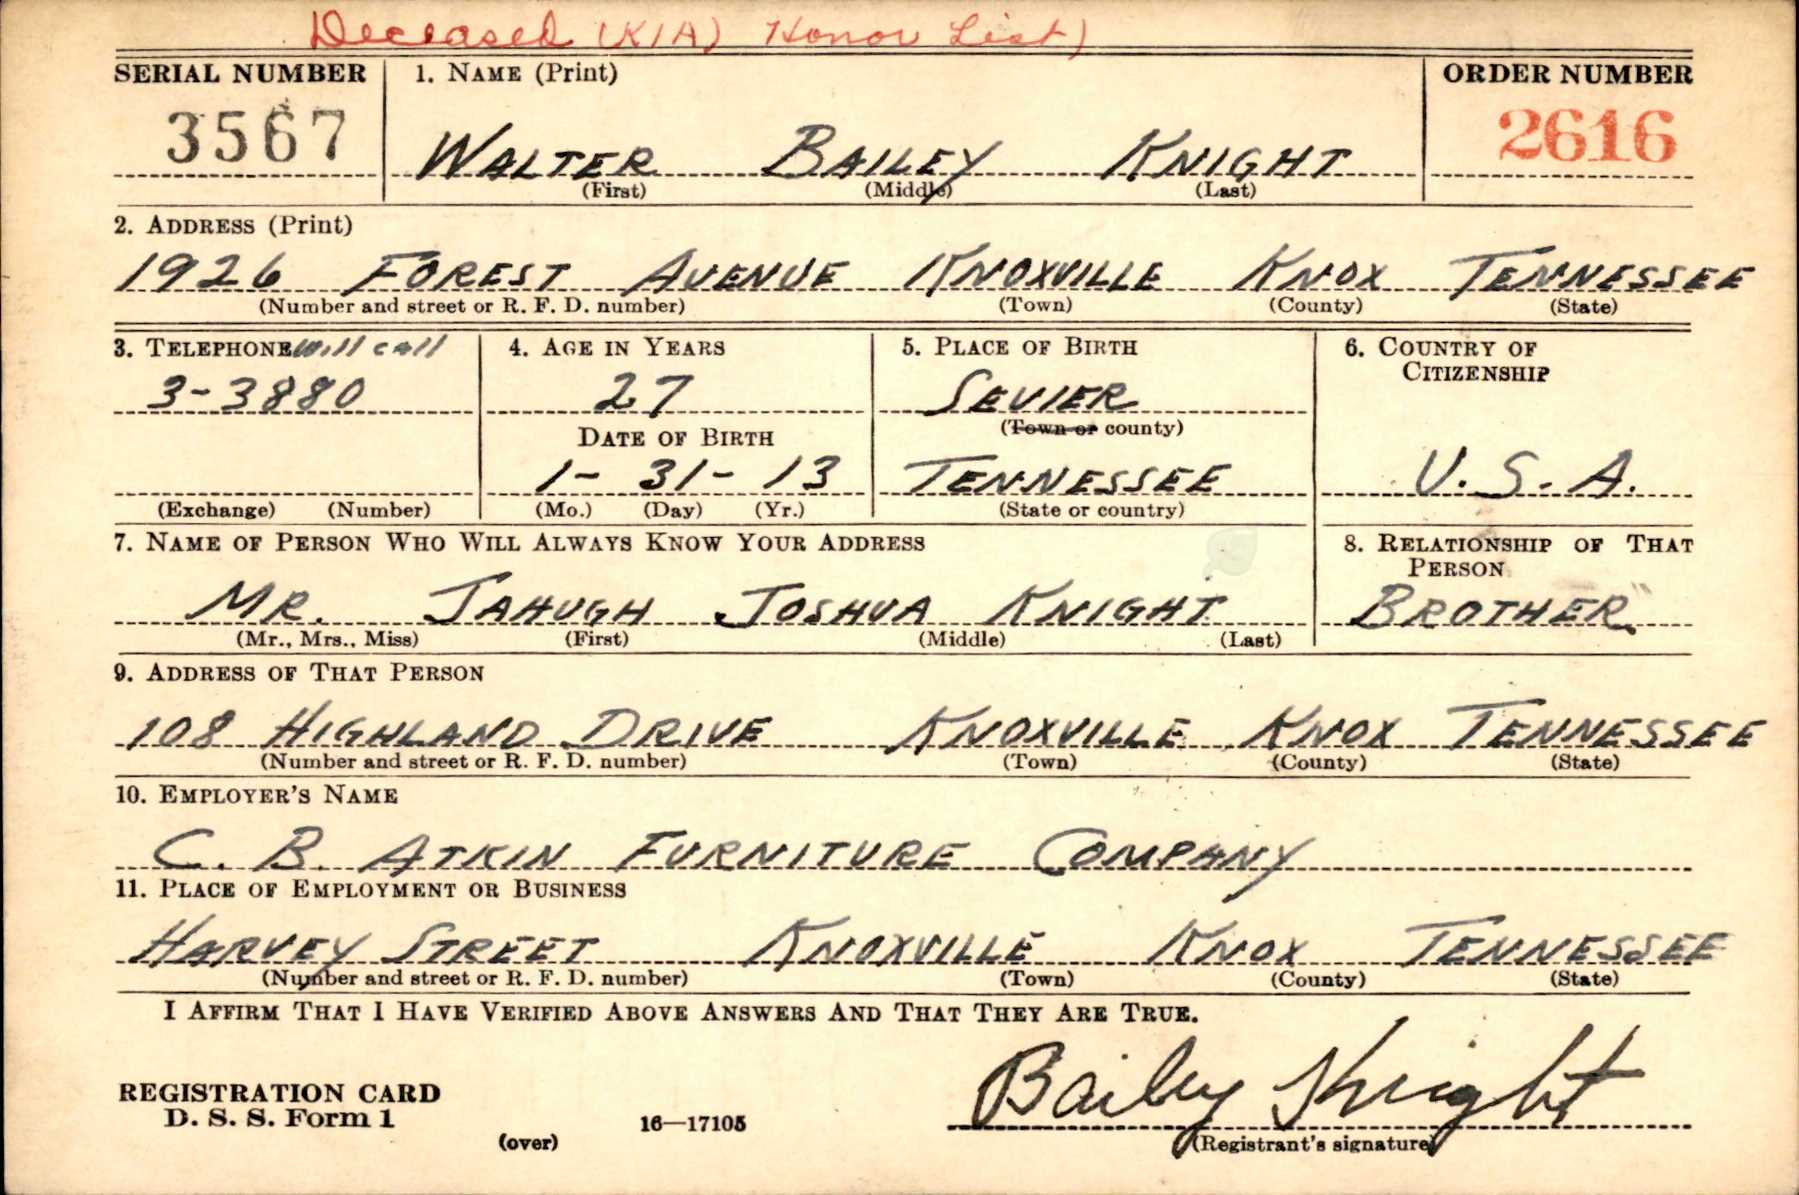 Deceased (KIA) Honor List)
SERIAL NUMBER 1. NAME (Print) ORDER NUMBER
3567 WALTER BAILEY KNIGHT 2616
(First) (Middle) (Last)
2. ADDRESS (Print)
1926 FOREST AVENUE KNOXVILLE KNOX TENNESSEE
(Number and street or R. F. D. number) (Town) (County) (State)
3. TELEPHONE will call 4. AGE IN YEARS 5. PLACE OF BIRTH 6. COUNTRY OF CITIZENSHIP
3-3880 27 SEVIER
(Town or county)
DATE OF BIRTH
1- 31- 13 TENNESSEE U. S. A.
(Exchange) (Number) (Mo.) (Day) (Yr.) (State or country)
7. NAME OF PERSON WHO WILL ALWAYS KNOW YOUR ADDRESS 8. RELATIONSHIP OF THAT PERSON
MR. JAHUGH JOSHUA KNIGHT BROTHER
(Mr., Mrs., Miss) (First) (Middle) (Last)
9. ADDRESS OF THAT PERSON
108 HIGHLAND DRIVE KNOXVILLE KNOX TENNESSEE
(Number and street or R. F. D. number) (Town) (County) (State)
10. EMPLOYER'S NAME
C. B. ATKIN FURNITURE COMPANY
11. PLACE OF EMPLOYMENT OR BUSINESS
HARVEY STREET KNOXVILLE KNOX TENNESSEE
(Number and street or R. F. D. number) (Town) (County) (State)
I AFFIRM THAT I HAVE VERIFIED ABOVE ANSWERS AND THAT THEY ARE TRUE.
Bailey Knight
REGISTRATION CARD
D. S. S. Form 1 16—17105
(over) (Registrant's signature)